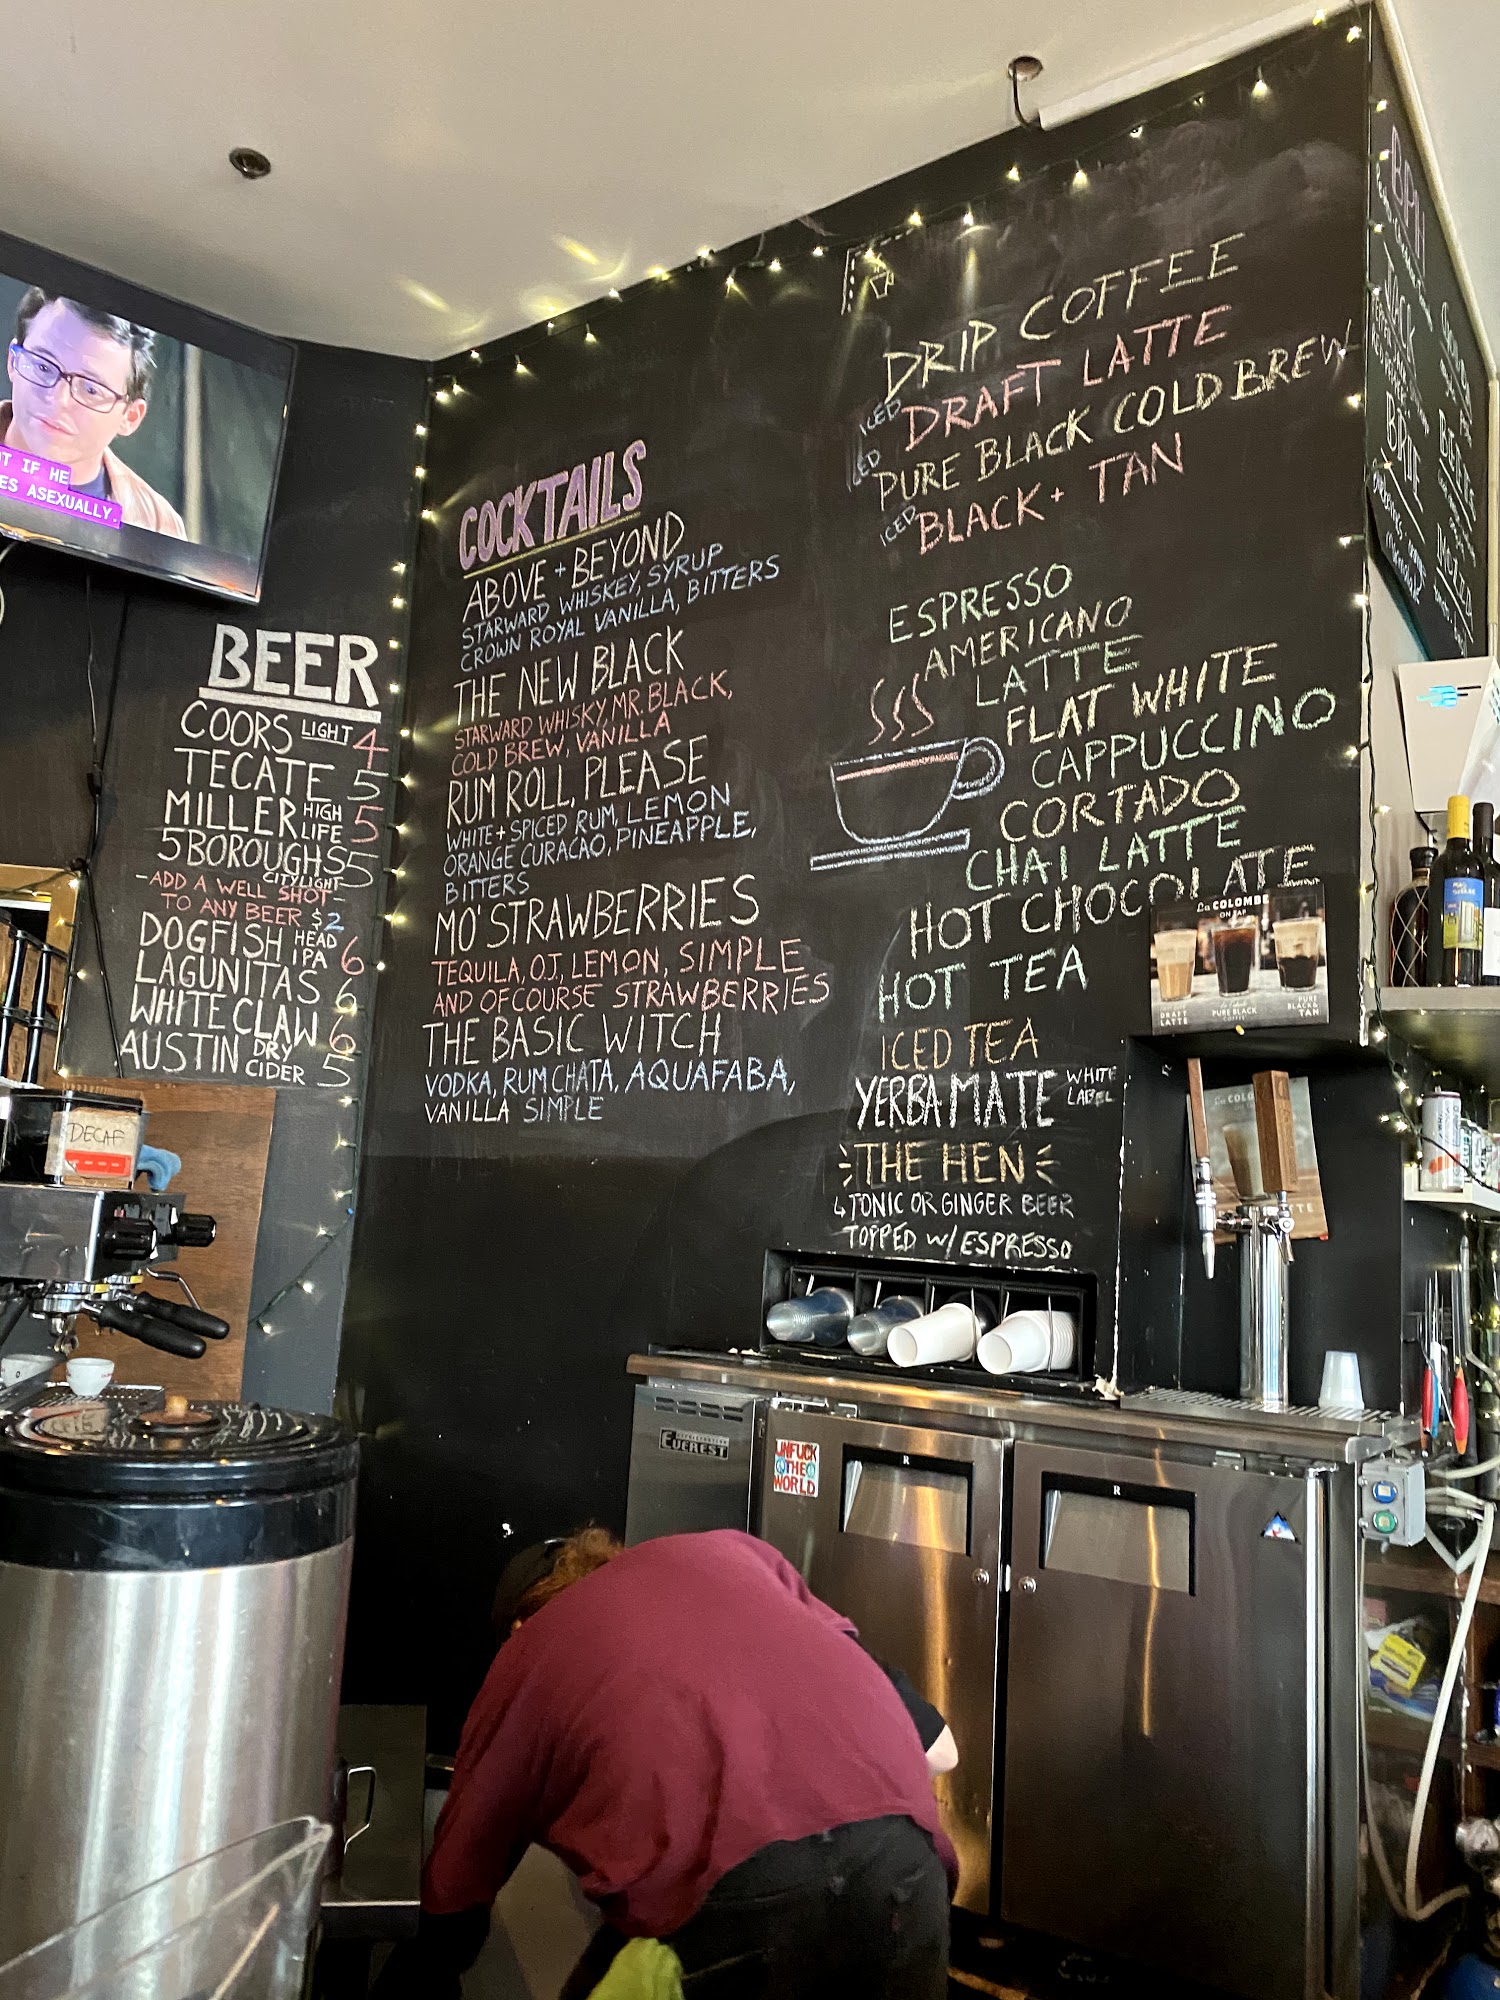 T IF HE
ES ASEXUALLY.
BEER
COORS LIGHT 4
TECATE 5
MILLER HIGH LIFE 5
5 BOROUGHS 5
CITY LIGHT
-ADD A WELL SHOT-
TO ANY BEER $2
DOGFISH HEAD IPA 6
LAGUNITAS 6
WHITE CLAW 6
AUSTIN DRY CIDER 5
DECAF
COCKTAILS
ABOVE + BEYOND
STARWARD WHISKEY, SYRUP
CROWN ROYAL VANILLA, BITTERS
THE NEW BLACK
STARWARD WHISKY, MR. BLACK,
COLD BREW, VANILLA
RUM ROLL, PLEASE
WHITE + SPICED RUM, LEMON
ORANGE CURACAO, PINEAPPLE,
BITTERS
MO' STRAWBERRIES
TEQUILA, O.J., LEMON, SIMPLE
AND OFCOURSE STRAWBERRIES
THE BASIC WITCH
VODKA, RUM CHATA, AQUAFABA,
VANILLA SIMPLE
DRIP COFFEE
ICED DRAFT LATTE
ICED PURE BLACK COLD BREW
ICED BLACK + TAN
ESPRESSO
AMERICANO
LATTE
FLAT WHITE
CAPPUCCINO
CORTADO
CHAI LATTE
HOT CHOCOLATE
HOT TEA
ICED TEA
YERBA MATE WHITE LABEL
THE HEN
TONIC OR GINGER BEER
TOPPED W/ ESPRESSO
La COLOMBE
ON TAP
DRAFT LATTE
PURE BLACK COFFEE
PURE BLACK & TAN
JACK
BRIE
EVEREST
UNFUCK
THE
WORLD
R
R